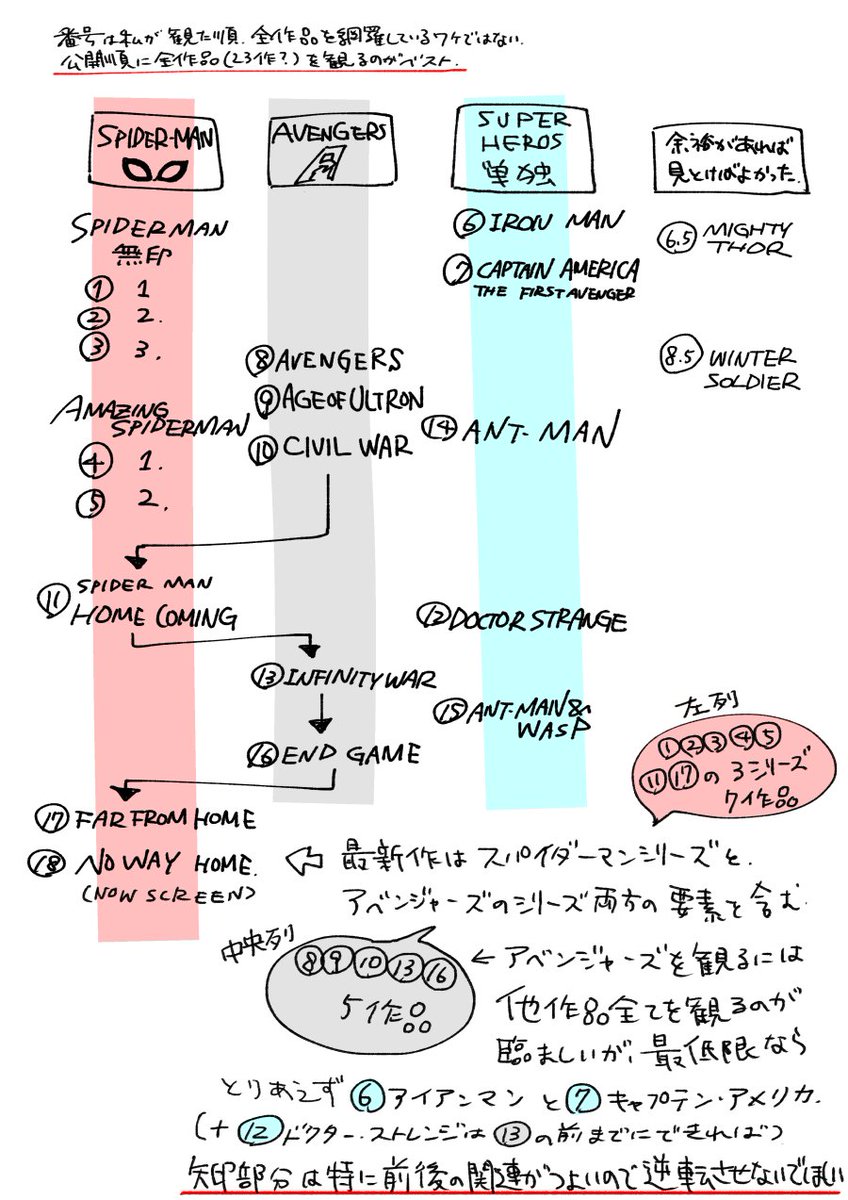 番号は私が観た順、全作品を網羅しているワケではない.
公開順に全作品(23作?)を観るのがベスト.
SPIDER-MAN
SPIDERMAN
無印
① 1
② 2.
③ 3.
AMAZING
SPIDERMAN
④ 1.
⑤ 2.
⑪ SPIDER MAN
HOME COMING
⑰ FAR FROM HOME
⑱ NO WAY HOME.
(NOW SCREEN)
AVENGERS
A
⑧ AVENGERS
⑨ AGE OF ULTRON
⑩ CIVIL WAR
⑬ INFINITY WAR
⑯ END GAME
SUPER
HEROS
単独
⑥ IRON MAN
⑦ CAPTAIN AMERICA
THE FIRST AVENGER
⑭ ANT-MAN
⑫ DOCTOR STRANGE
⑮ ANT-MAN &
WASP
余裕があれば
見とけばよかった.
6.5 MIGHTY
THOR
8.5 WINTER
SOLDIER
左列
①②③④⑤
⑪⑰の3シリーズ
7作品
⇦ 最新作はスパイダーマンシリーズと.
アベンジャーズのシリーズ両方の要素を含む.
中央列
⑧⑨⑩⑬⑯
5作品
← アベンジャーズを観るには
他作品全てを観るのが
臨ましいが、最低限なら
とりあえず ⑥ アイアンマン と ⑦ キャプテン・アメリカ.
(+ ⑫ ドクター・ストレンジは ⑬ の前までにできれば)
矢印部分は特に前後の関連がつよいので逆転させないでほしい